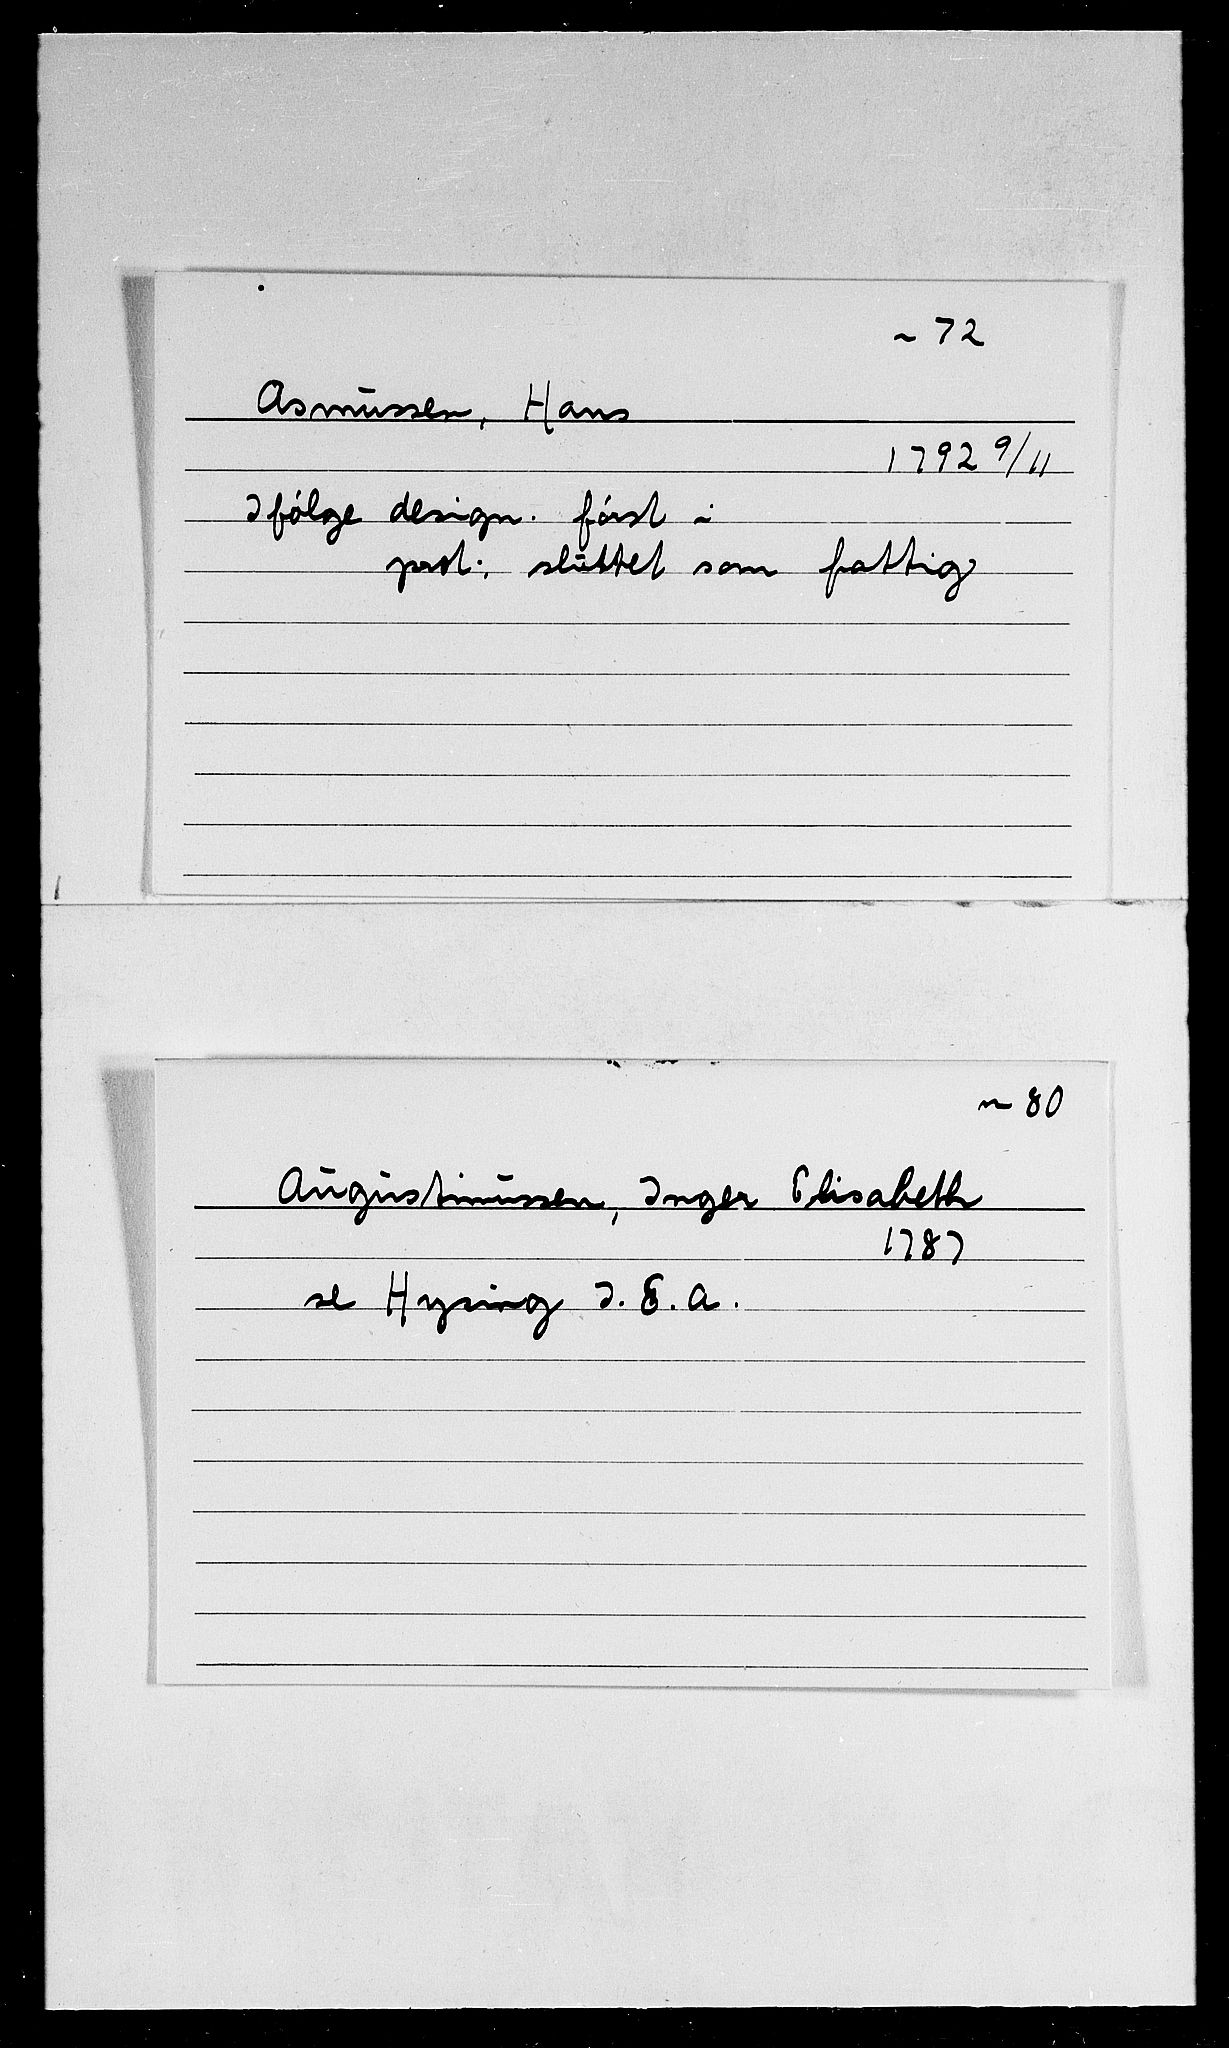 ~ 72
Asmussen, Hans
1792 9/11
Ifølge design. først i
prot.; sluttet som fattig
n 80
Augustinussen, Inger Elisabeth
1787
se Hysing I. E. A.